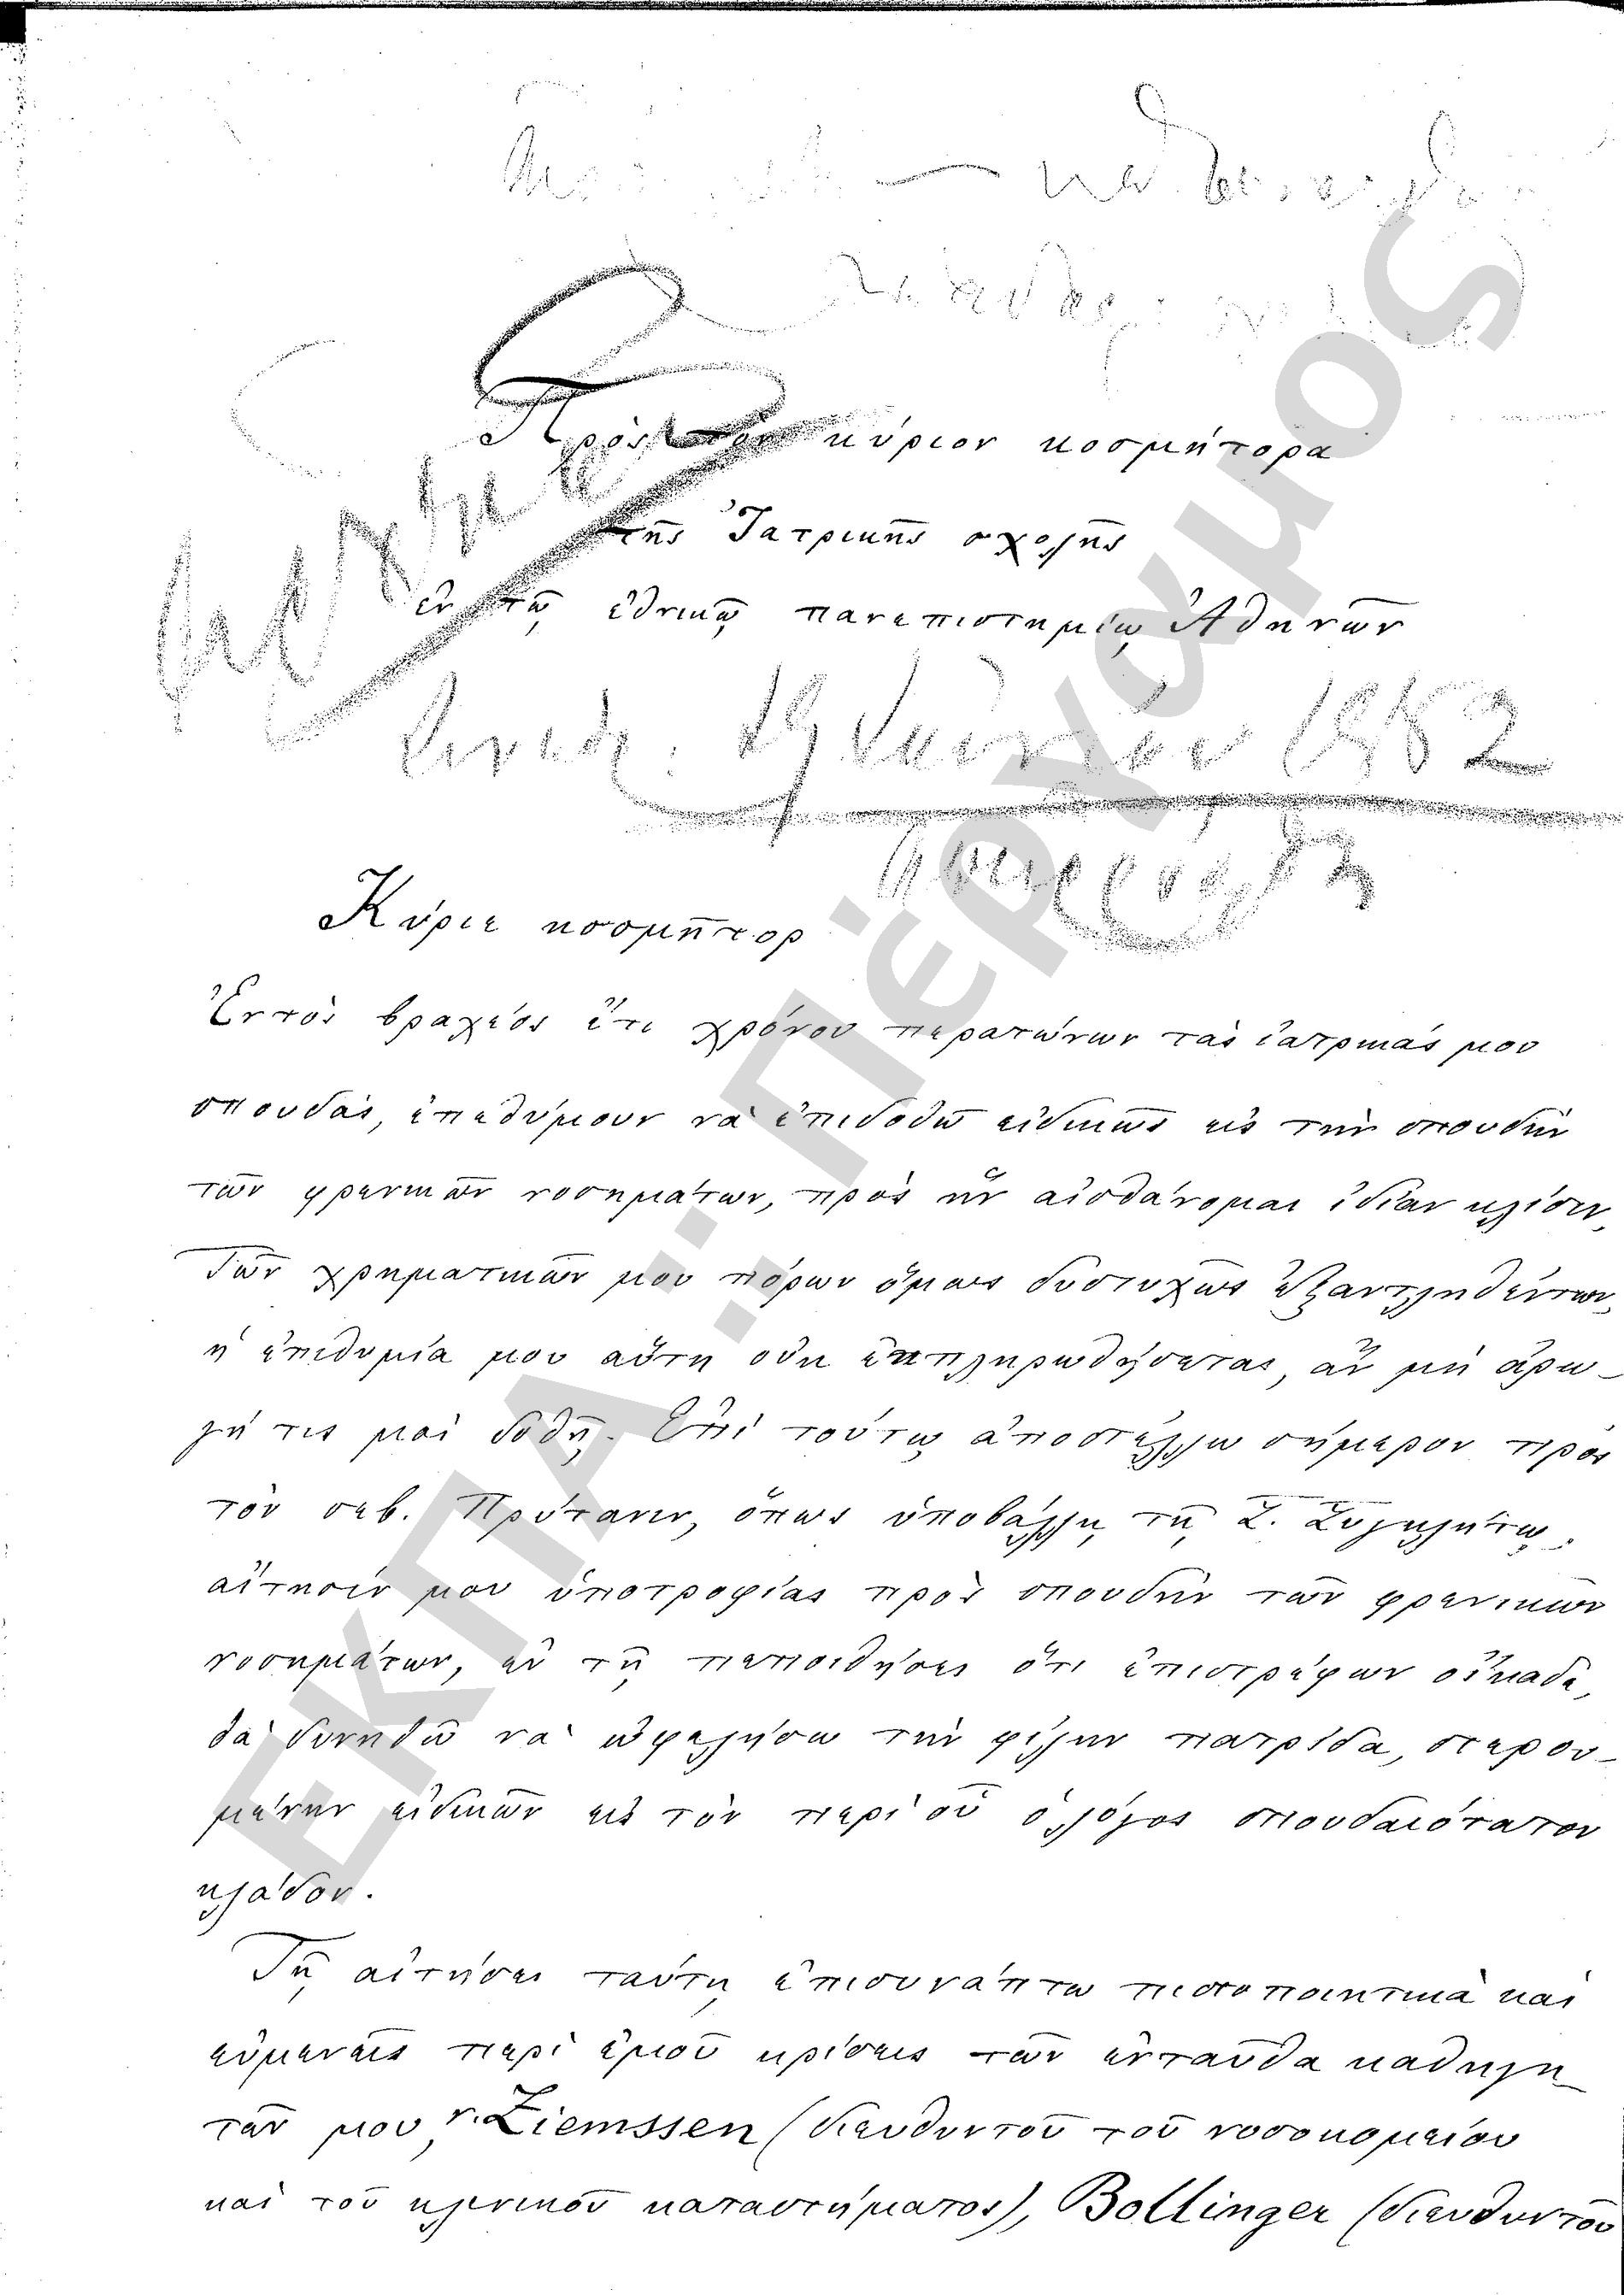 Πρὸς τὸν κύριον κοσμήτορα
τῆς Ἰατρικῆς σχολῆς
ἐν τῷ ἐθνικῷ πανεπιστημίῳ Ἀθηνῶν
19 1882
Κύριε κοσμῆτορ
Ἐντὸς βραχέος ἔτι χρόνου περατώνων τὰς ἰατρικάς μου
σπουδάς, ἐπεθύμουν νὰ ἐπιδοθῶ εἰδικῶς εἰς τὴν σπουδὴν
τῶν φρενικῶν νοσημάτων, πρὸς ἣν αἰσθάνομαι ἰδίαν κλίσιν.
Τῶν χρηματικῶν μου πόρων ὅμως δυστυχῶς ἐξαντληθέντων,
ἡ ἐπιθυμία μου αὕτη οὐκ ἐκπληρωθήσεται, ἂν μὴ ἀρω-
γή τις μοὶ δοθῇ. Ἐπὶ τούτῳ ἀποστέλλω σήμερον πρὸς
τὸν σεβ. Πρύτανιν, ὅπως ὑποβάλῃ τῇ Σ. Συγκλήτῳ,
αἴτησίν μου ὑποτροφίας πρὸς σπουδὴν τῶν φρενικῶν
νοσημάτων, ἐν τῇ πεποιθήσει ὅτι ἐπιστρέφων οἴκαδε,
θὰ δυνηθῶ νὰ ὠφελήσω τὴν φίλην πατρίδα, στερου-
μένην εἰδικῶν εἰς τὸν περὶ οὗ ὁ λόγος σπουδαιότατον
κλάδον.
Τῇ αἰτήσει ταύτῃ ἐπισυνάπτω πιστοποιητικὰ καὶ
εὐμενεῖς περὶ ἐμοῦ κρίσεις τῶν ἐνταῦθα καθηγη-
τῶν μου v. Ziemssen (διευθυντοῦ τοῦ νοσοκομείου
καὶ τοῦ κλινικοῦ καταστήματος), Bollinger (διευθυντοῦ
ΕΚΠΑ: Πέργαμος